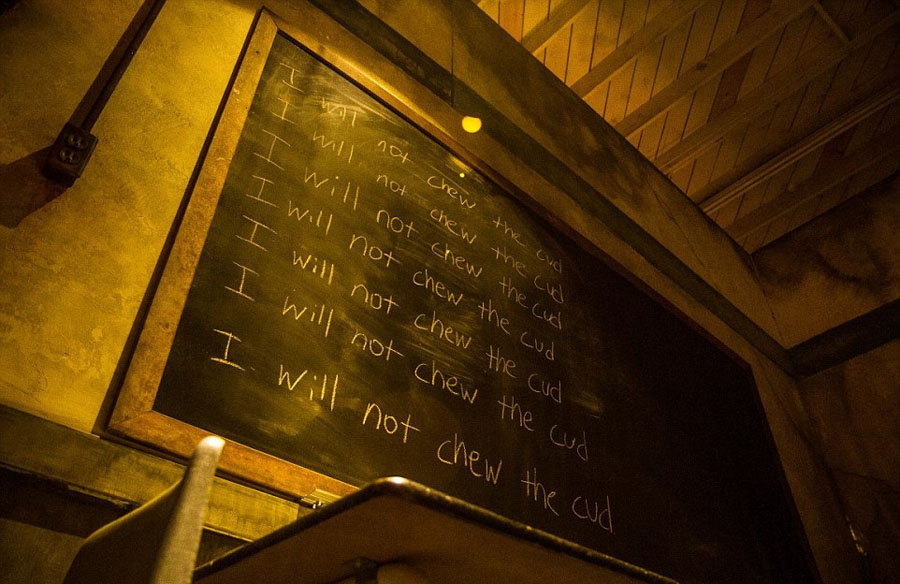 I will not chew the cud
I will not chew the cud
I will not chew the cud
I will not chew the cud
I will not chew the cud
I will not chew the cud
I will not chew the cud